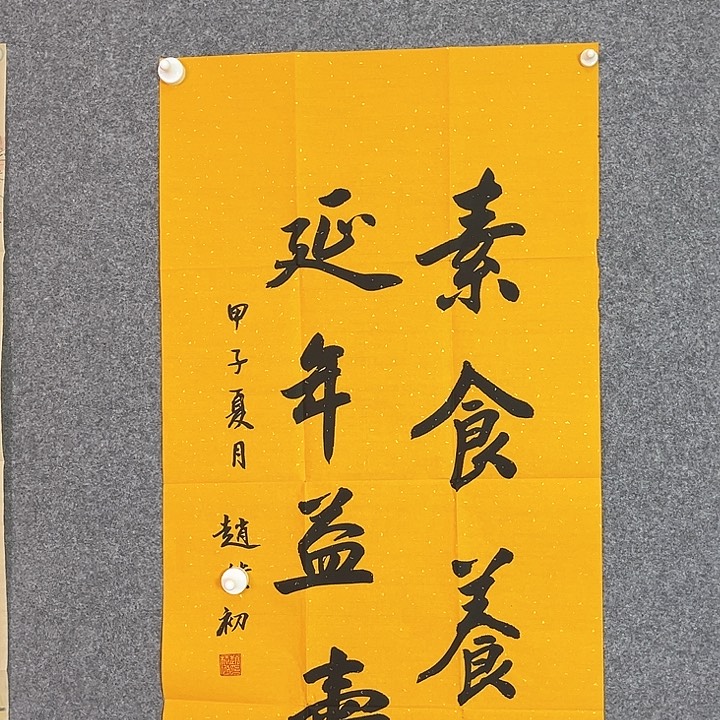 素食養
延年益壽
甲子夏月
趙 初